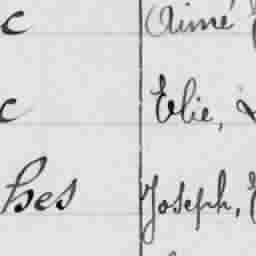 c Aimé
c Elie,
hes Joseph,